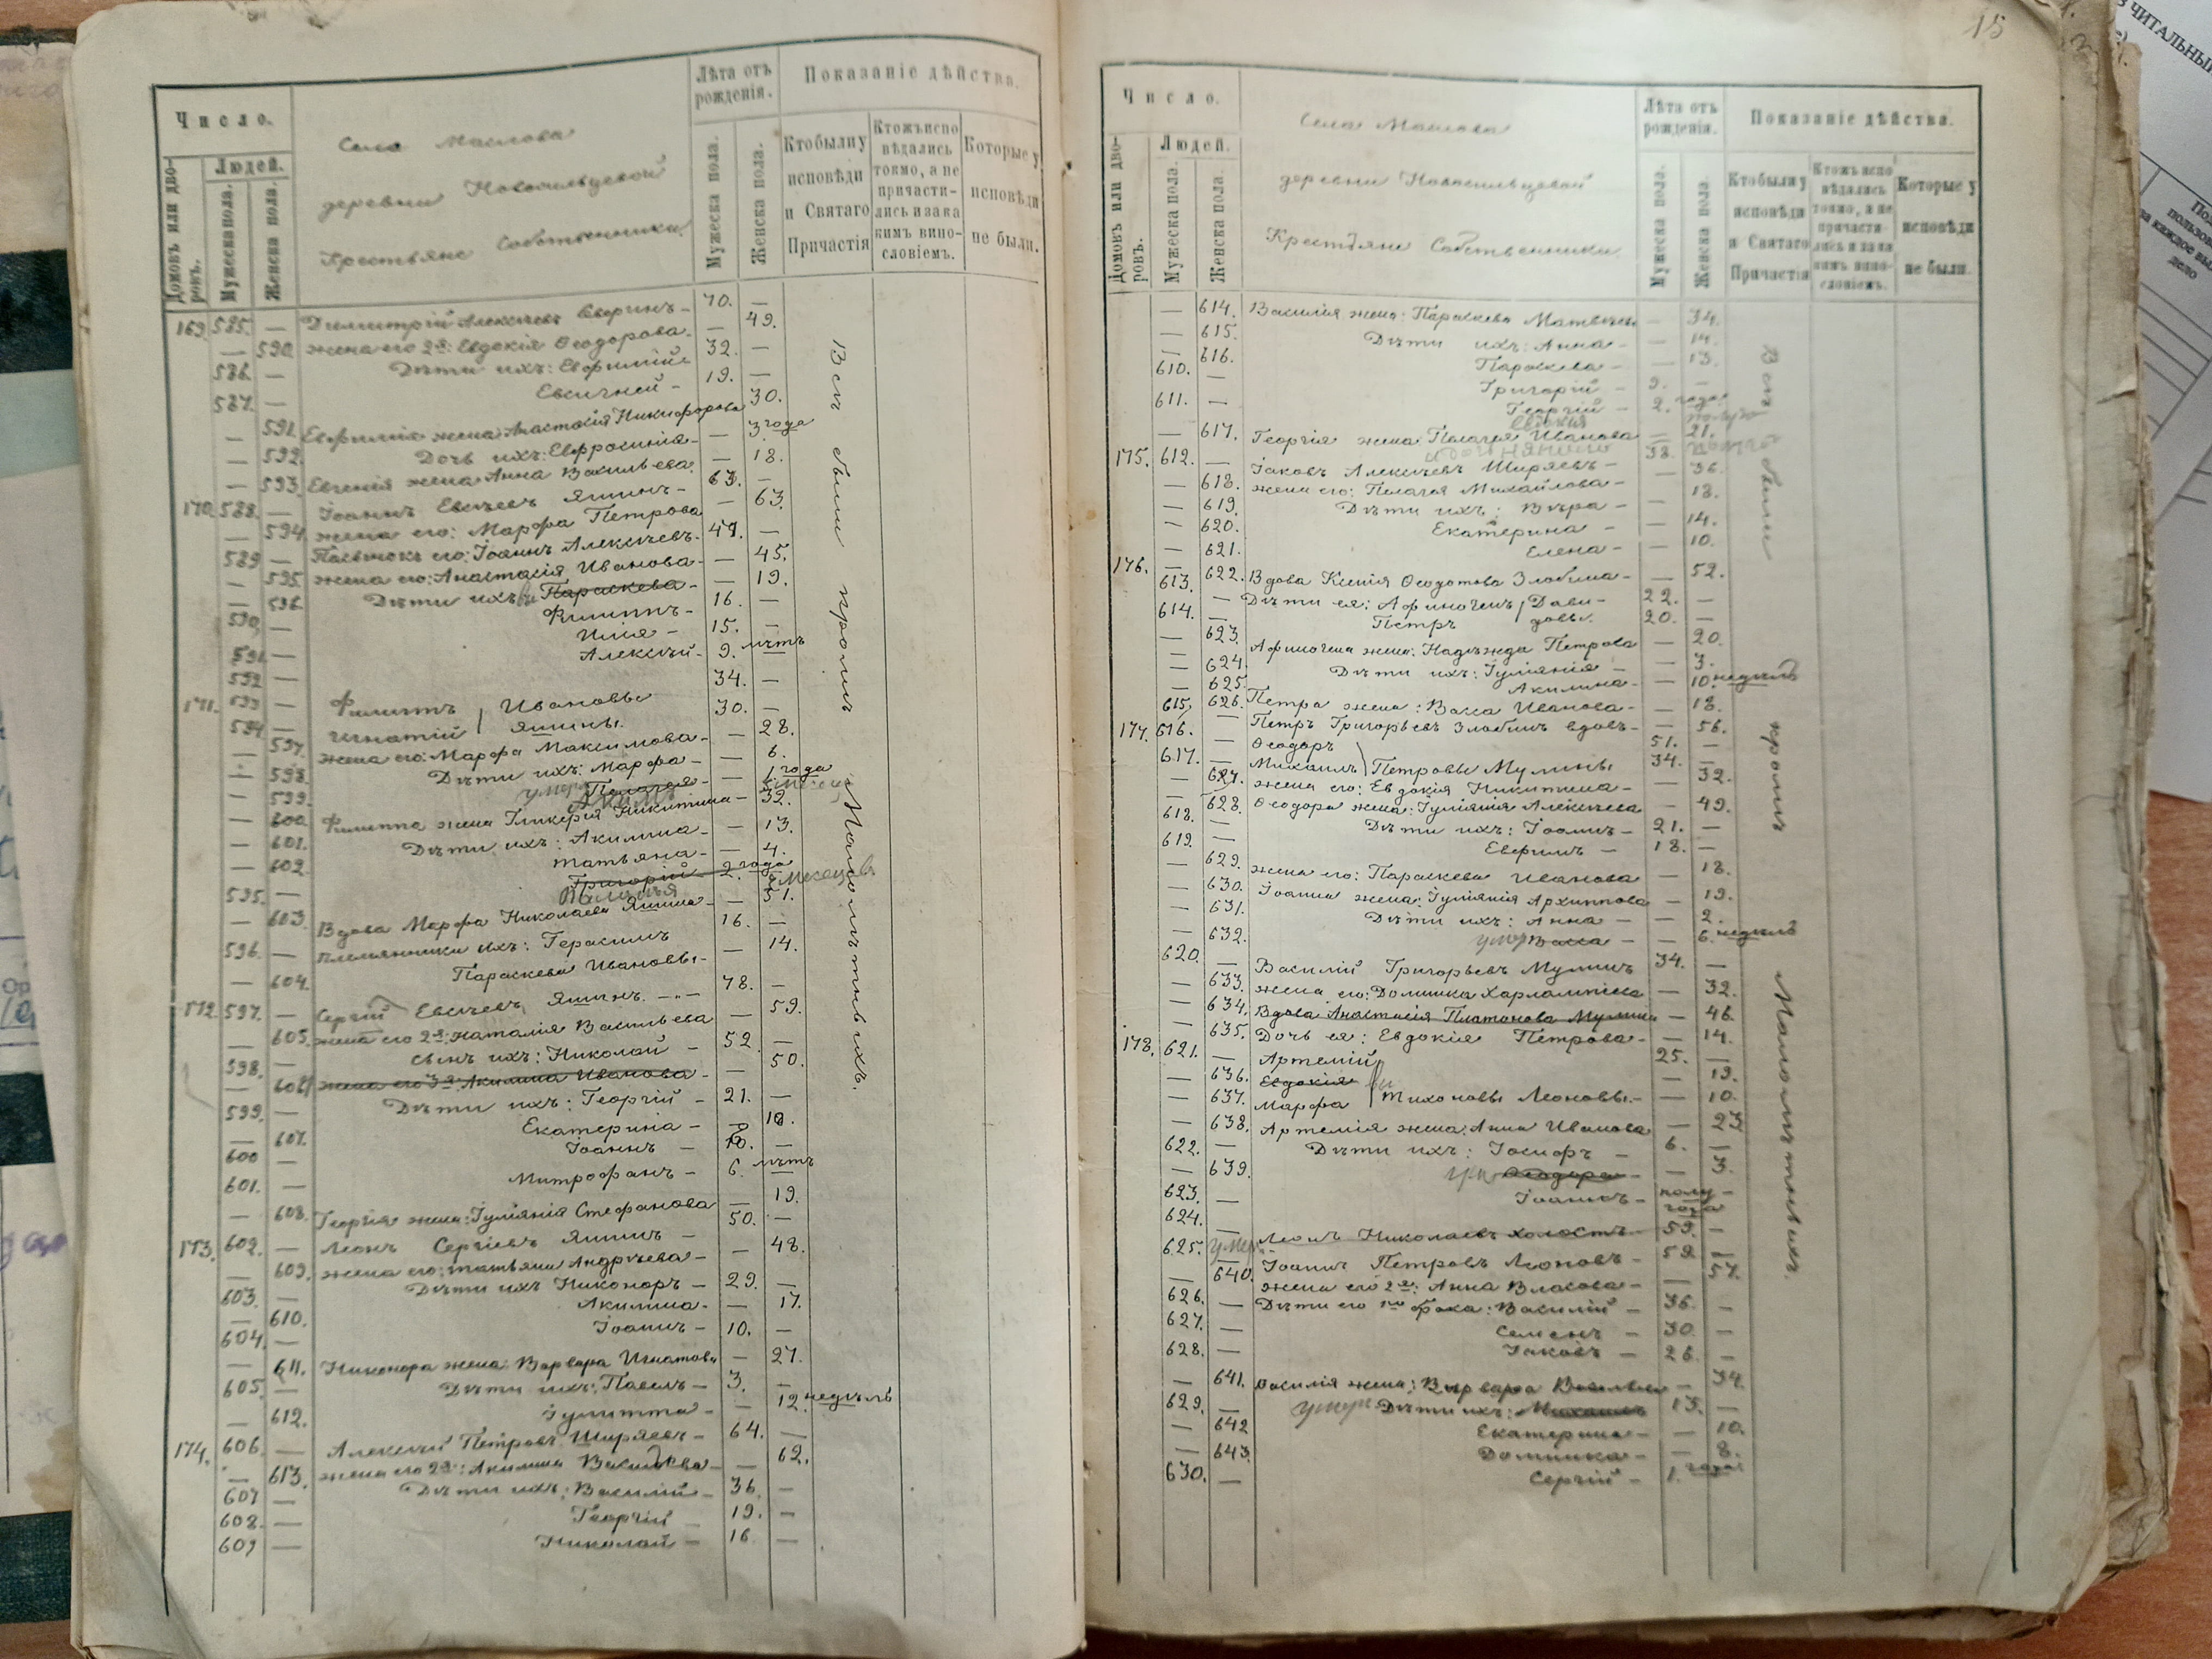 Число.
Домовъ или дворовъ.
Людей.
Мужеска пола.
Женска пола.
Села Маслова
деревни Новосильцевой
Крестьяне Собственники
Лѣта отъ рожденія.
Мужеска пола.
Женска пола.
Показаніе дѣйства.
Кто были у исповѣди и Святаго Причастія
Кто жъ исповѣдались токмо, а не причастились и за какимъ винословіемъ.
Которые у исповѣди не были.
169. 585. — Димитрій Алексѣевъ Аверинъ — 70. —
— 590. жена его 2я: Евдокія Ѳеодорова — — 49.
586. — Дѣти ихъ: Евфимій 32. —
587. — Евгеній — 19. —
— 591. Евфимія жена: Анастасія Никифорова 30.
— 592. Дочь ихъ: Евфросинія — — 3 года
— 593. Евгенія жена Анна Васильева — 18.
170. 588. — Іоаннъ Евсѣевъ Яшинъ — 63. —
— 594. жена его: Марфа Петрова — 63.
589 — Пасынокъ его: Іоаннъ Алексѣевъ. 47. —
— 595. жена его: Анастасія Иванова — — 45.
— 596. Дѣти ихъ: Параскева — — 19.
590. — Филиппъ — 16. —
591. — Илія — 15. —
592 — Алексѣй — 9. лѣтъ —
171. 593 — Филиппъ Ивановы 34. —
594. — Игнатій Яшины. 30. —
— 597. жена его: Марфа Максимова — — 28.
— 598. Дѣти ихъ: Марфа — — 6.
— 599. Пелагея — — 1. года
— 600. Филиппа жена Гликерія Никитина — 32.
— 601. Дѣти ихъ: Акилина — — 13.
— 602. Татьяна — — 4.
595. — Григорій — 2. года
— 603. Вдова Марфа Николаева Яшина — — 51.
596. — племянники ихъ: Герасимъ 16. —
— 604. Параскева Ивановы — — 14.
172. 597. — Сергій Евсѣевъ Яшинъ. — 78. —
— 605. жена его 2я: Наталія Васильева — 59.
598. — сынъ ихъ: Николай — 52. —
— 606. жена его 3я: Акилина Иванова — — 50.
599. — Дѣти ихъ: Георгій — 21. —
— 607. Екатерина — — 18.
600 — Іоаннъ — 10. —
601. — Митрофанъ — 6. лѣтъ
— 608. Георгія жена: Іуліанія Стефанова — 19.
173. 602. — Леонъ Сергіевъ Яшинъ — 50. —
— 609. жена его: Татьяна Андреева — — 48.
603. — Дѣти ихъ Никоноръ — 29. —
— 610. Акилина — — 17.
604. — Іоаннъ — 10. —
— 611. Никонора жена: Варвара Игнатова — 27.
605. — Дѣти ихъ: Павелъ — 3. —
— 612. Іулитта — — 12 недѣль
174. 606. — Алексѣй Петровъ Ширяевъ — 64. —
— 613. жена его 2я: Акилина Васильева — — 62.
607 — Дѣти ихъ: Василій — 36. —
608. — Георгій — 19. —
609 — Николай — 16 —
Всѣ были кромѣ Малолѣтнихъ.
15
Число.
Домовъ или дворовъ.
Людей.
Мужеска пола.
Женска пола.
Села Маслова
деревни Новосильцевой
Крестьяне Собственники.
Лѣта отъ рожденія.
Мужеска пола.
Женска пола.
Показаніе дѣйства.
Кто были у исповѣди и Святаго Причастія
Кто жъ исповѣдались токмо, а не причастились и за какимъ винословіемъ.
Которые у исповѣди не были.
— 614. Василія жена: Параскева Матвѣева — 34.
— 615. Дѣти ихъ: Анна — — 14.
— 616. Параскева — — 13.
610. — Григорій — 9. —
611. — Георгій — 2. года
— 617. Георгія жена: Пелагея Иванова — 21.
175. 612. — Іаковъ Алексѣевъ Ширяевъ — 38.
— 618. жена его: Пелагея Михайлова — — 36.
— 619. Дѣти ихъ: Вѣра — — 18.
— 620. Екатерина — — 14.
— 621. Елена — — 10.
176. — 622. Вдова Ксенія Ѳеодотова Злобина — — 52.
613. — Дѣти ея: Афиногенъ Дави- 22. —
614. — Петръ довы. 20. —
— 623. Афиногена жена: Надежда Петрова — 20.
— 624. Дѣти ихъ: Іуліанія — — 3.
— 625. Акилина — — 10. недѣль
— 626. Петра жена: Васса Иванова — — 18.
177. 615, Петръ Григорьевъ Злобинъ вдовъ — — 56.
616. — Ѳеодоръ 51. —
617. — Михаилъ Петровы Мулины 34. —
— 627. жена его: Евдокія Никитина — — 32.
— 628. Ѳеодора жена: Іуліанія Алексѣева — 49.
618. — Дѣти ихъ: Іоаннъ — 21. —
619. — Евфимъ — 18. —
— 629. жена его: Параскева Иванова — 18.
— 630. Іоанна жена: Іуліанія Архиппова — 19.
— 631. Дѣти ихъ: Анна — — 2.
— 632. умер Васса — — 6. недѣль
620. — Василій Григорьевъ Мулинъ 34. —
— 633. жена его: Домника Харлампіева — 32.
— 634. Вдова Анастасія Платонова Мулина — 46.
— 635. Дочь ея: Евдокія Петрова — — 14.
178. 621. — Артемій 25. —
— 636. Евдокія — 19.
— 637. Марфа Тихоновы Леоновы. — — 10.
— 638. Артемія жена: Анна Иванова — 23
622. — Дѣти ихъ: Іосифъ — 6. —
— 639. Ѳеодора — — 3.
623. — Іоаннъ — полу- года
624. — Леонъ Николаевъ холостъ 59. —
625. Іоаннъ Петровъ Леоновъ — 58 —
— 640. жена его 2я: Анна Власова — — 57.
626. — Дѣти его 1го брака: Василій — 36. —
627. — Семенъ — 30. —
628. — Іаковъ — 26. —
— 641. Василія жена: Варвара Васильева — 34.
629. — Дѣти ихъ: Михаилъ 13. —
— 642 Екатерина — — 10.
— 643 Домника — — 8.
630. — Сергій — 1. года
Всѣ были кромѣ Малолѣтнихъ.